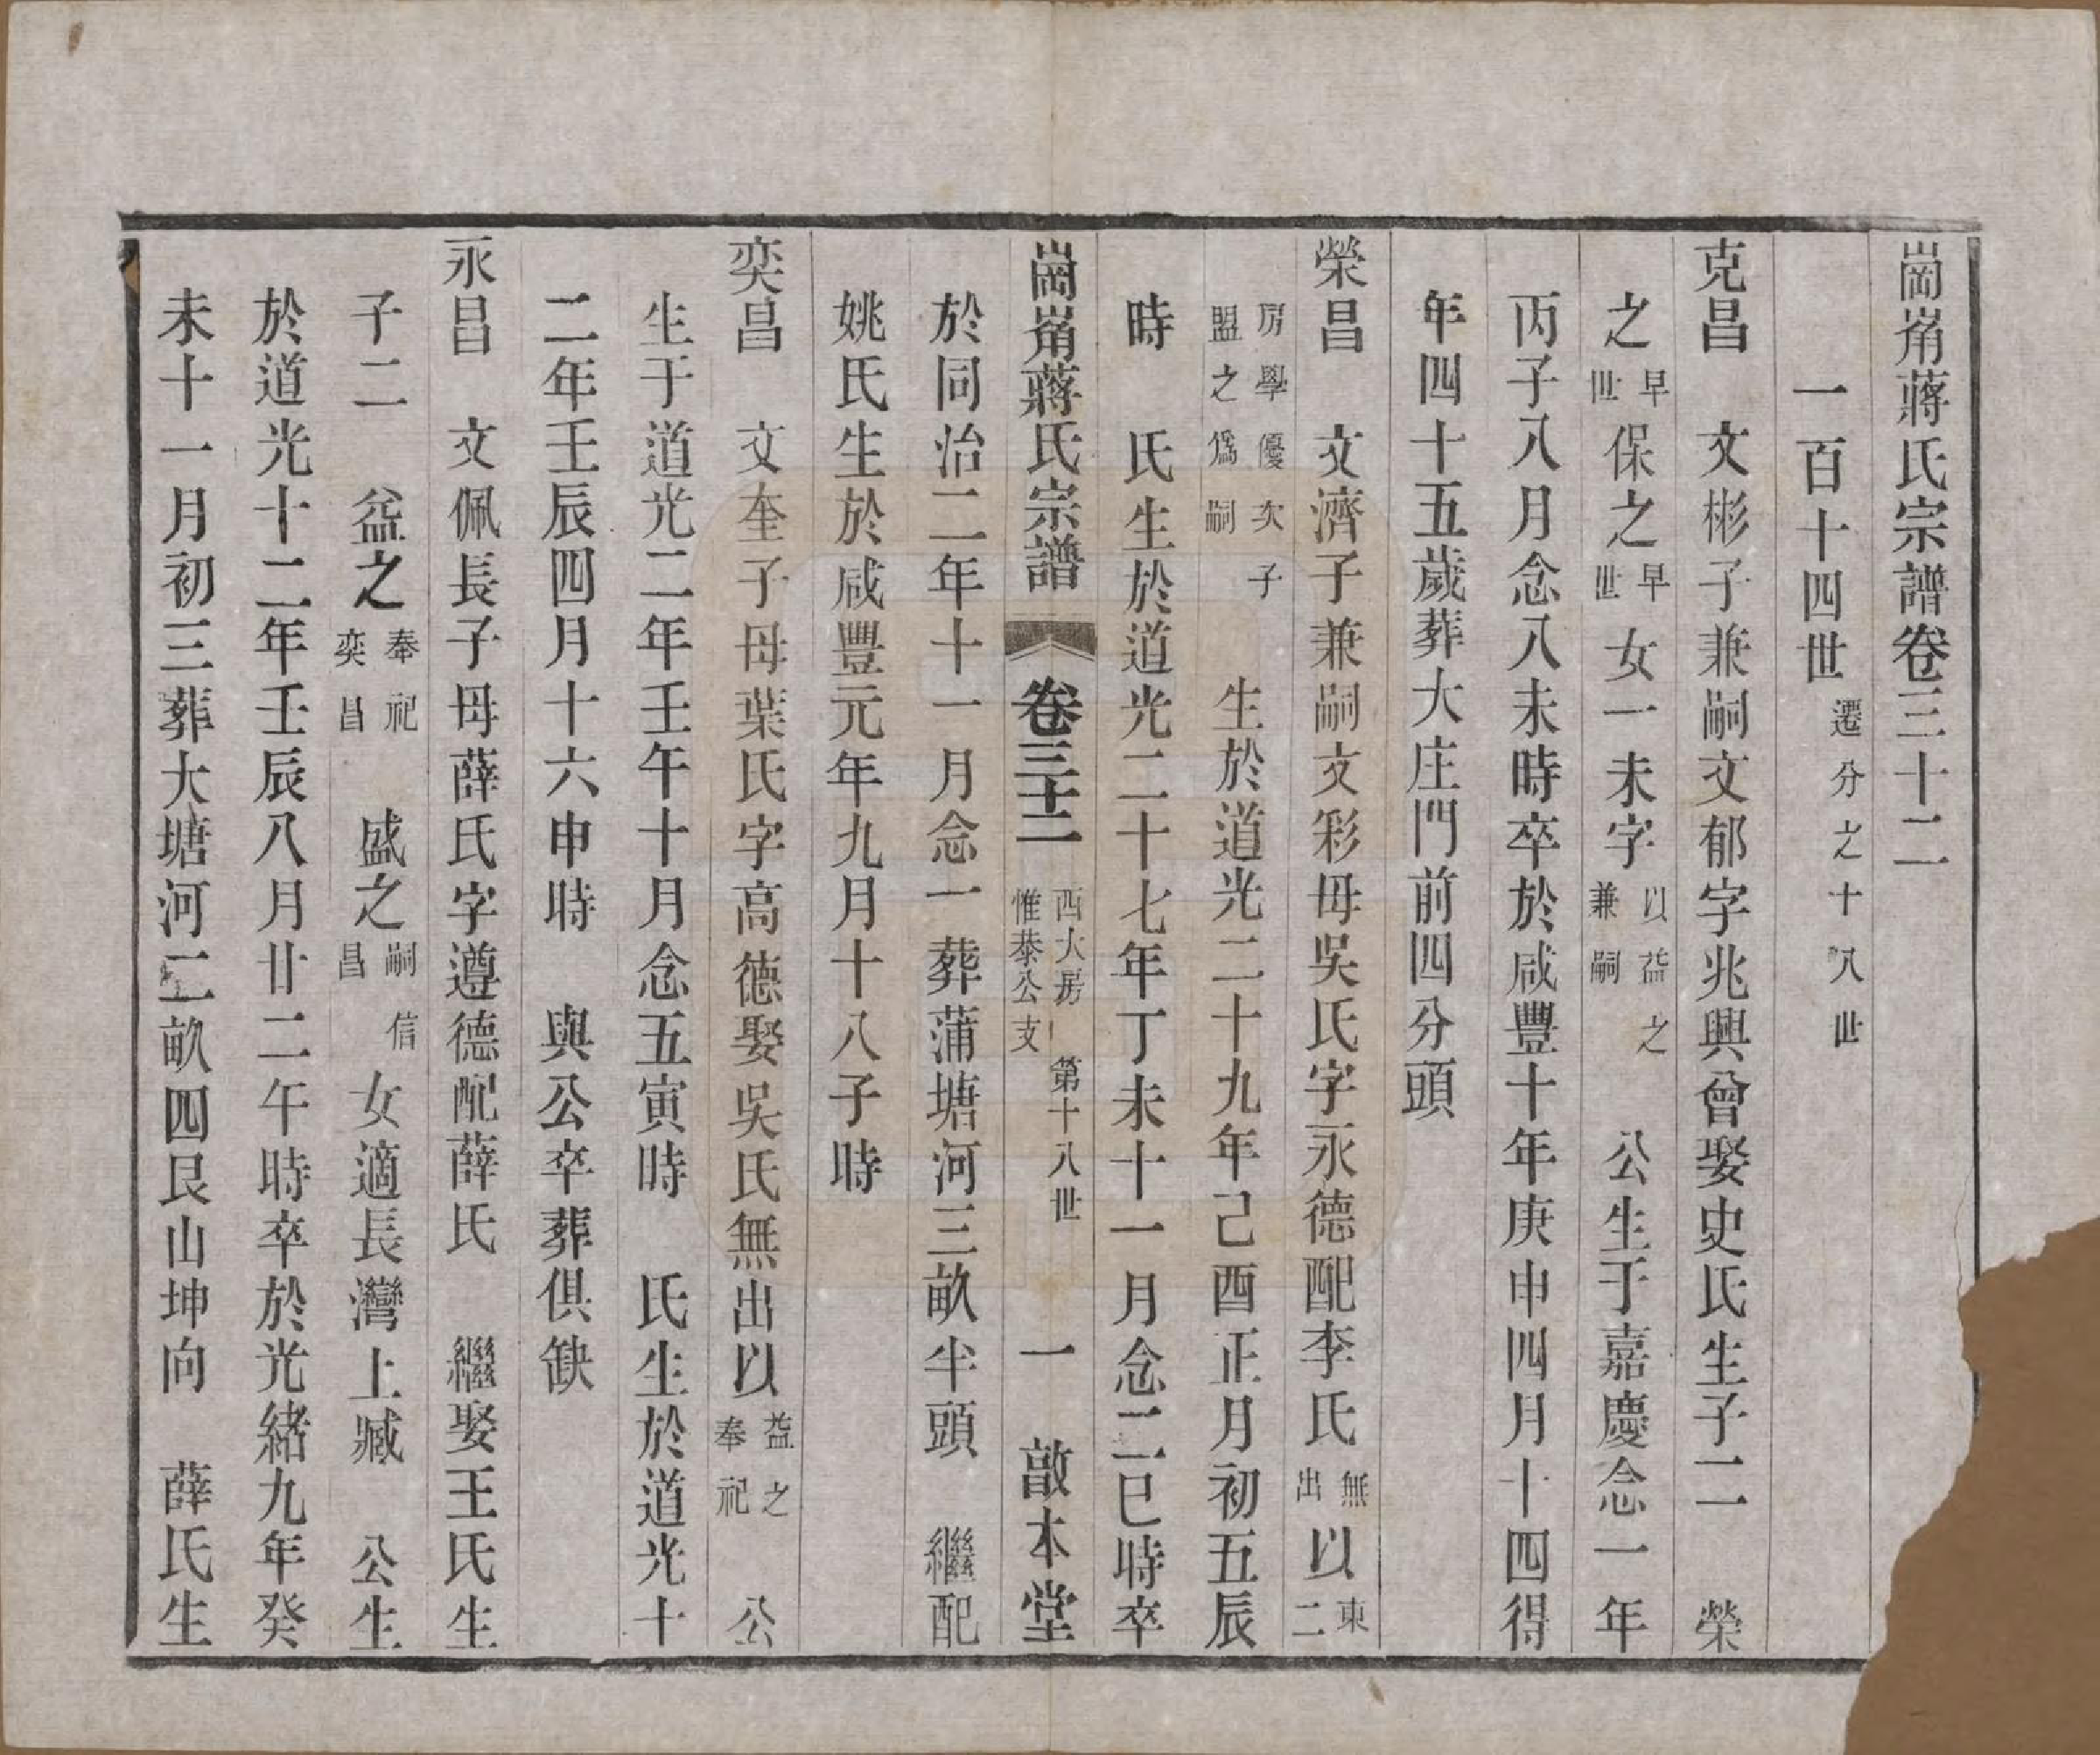 崗崙蔣氏宗譜卷三十二
一百十四世 遷分之十八世
克昌 文彬子兼嗣文郁字兆興曾娶史氏生子二 榮
之早世保之早世女一未字以益之兼嗣 公生于嘉慶念一年
丙子八月念八未時卒於咸豐十年庚申四月十四得
年四十五歲葬大庄門前四分頭
榮昌 文濟子兼嗣文彩母吳氏字永德配李氏無出以東二
房學優次子盟之爲嗣 生於道光二十九年己酉正月初五辰
時 氏生於道光二十七年丁未十一月念二巳時卒
崗崙蔣氏宗譜 卷三十二 西大房惟恭公支 第十八世 一 敿本堂
於同治二年十一月念一葬蒲塘河三畝半頭 繼配
姚氏生於咸豐元年九月十八子時
奕昌 文奎子母葉氏字高德娶吳氏無出以益之奉祀 公
生于道光二年壬午十月念五寅時 氏生於道光十
二年壬辰四月十六申時 與公卒葬俱缺
永昌 文佩長子母薛氏字遵德配薛氏 繼娶王氏生
子二 益之奉祀奕昌 盛之嗣信昌 女適長灣上臧 公生
於道光十二年壬辰八月廿二午時卒於光緒九年癸
未十一月初三葬大塘河二畝四艮山坤向 薛氏生